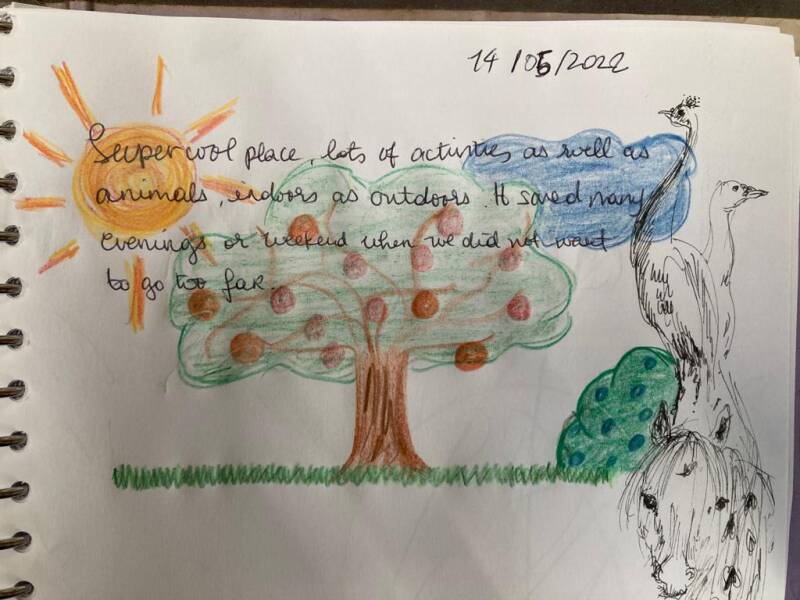 14/05/2022
Super cool place, lots of activities as well as
animals, indoors as outdoors. It saved many
evenings or weekend when we did not want
to go too far.